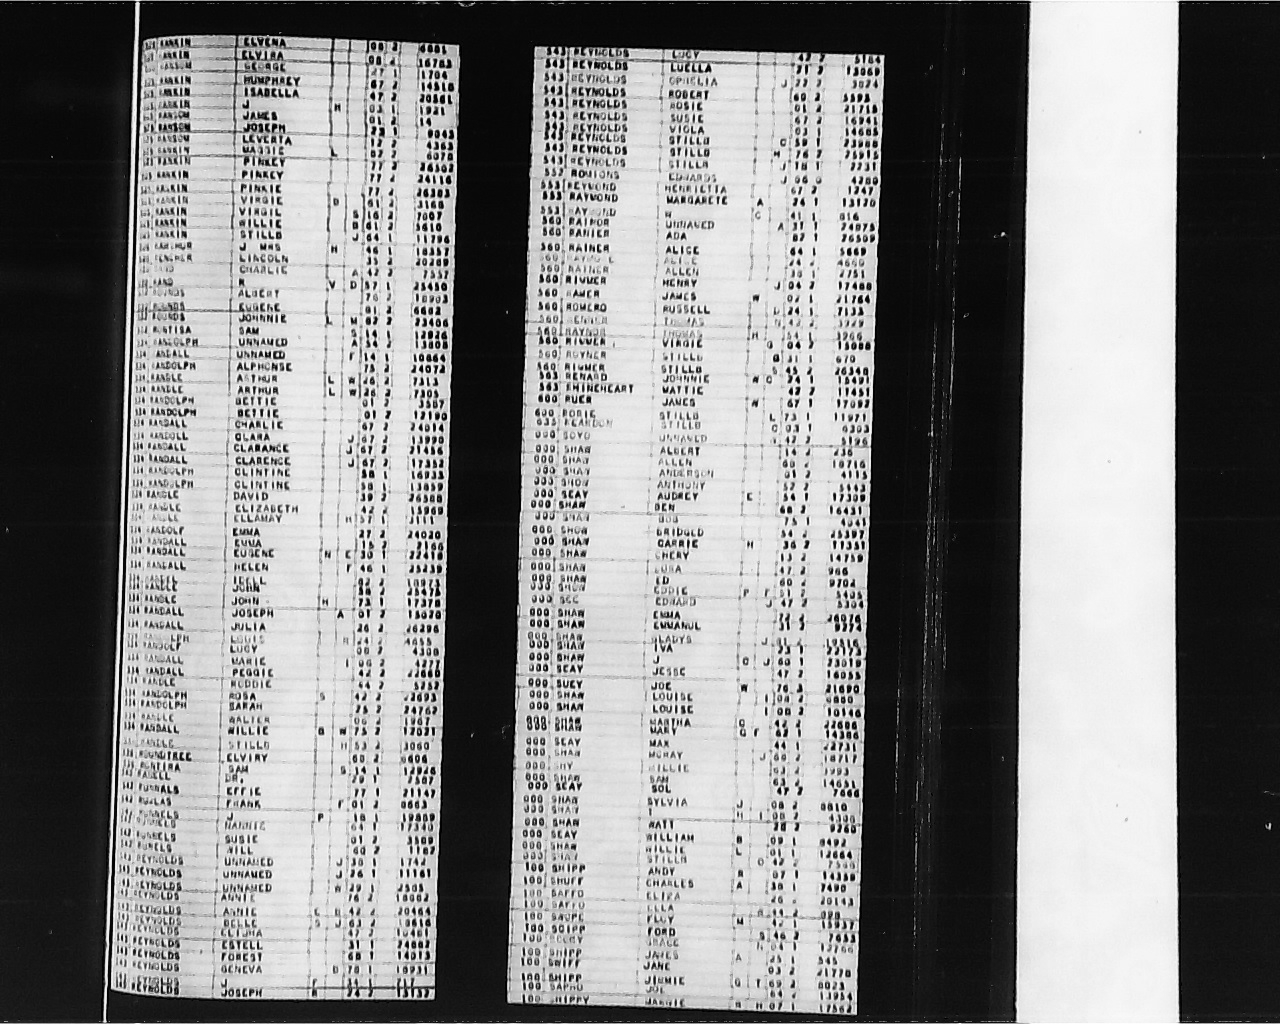 RANKIN ELVENA 08 2
RANKIN ELVIRA 08 2 16783
RANSOM GEORGE 27 1 1704
RANKIN HUMPHREY 67 2 14518
RANKIN ISABELLA 47 2 20581
RANKIN J H 03 1 1921
RANSOM JAMES 01 2 14
RANSOM JOSEPH 23 1 9043
RANSOM LEVERTA 12 2 4363
RANKIN MAGGIE L 07 2 6078
RANKIN PINKEY 77 2 26502
RANKIN PINKEY 77 2 24116
RANKIN PINKIE 77 2 26383
RANKIN VIRGIE D 61 2 3168
RANKIN VIRGIL S 16 2 7007
RANKIN WILLIE B 61 2 5610
RANKIN STILLB J 64 1 11796
J MRS H 46 1 18357
LINCOLN 35 2
CHARLIE A 42 2 7557
RAND R V D 57 1 25450
ROUNDS ALBERT 76 2 18903
ROUNDS EUGENE 01 2 6682
ROUNDS JOHNNIE L M 62 2 23406
SAM S 14 1 13926
RANDOLPH UNNAMED A 54 2 13808
334 RANDALL UNNAMED F 14 1 10864
334 RANDOLPH ALPHONSE 75 2 24072
334 RANDLE ARTHUR L W 26 2 7313
334 RANDLE ARTHUR L W 26 2 7305
334 RANDOLPH BETTIE 01 2 3507
334 RANDOLPH BETTIE 01 2 12190
334 RANDALL CHARLIE 67 2 24014
334 RANDOLL CLARA J 67 2 13990
334 RANDALL CLARANCE J 67 2 21456
334 RANDALL CLARENCE J 67 2 17352
334 RANDOLPH CLINTINE 58 1 16933
334 RANDOLPH CLINTINE 58 1 13859
334 RANDLE DAVID 39 2 26588
334 RANDLE ELIZABETH 42 2 15969
334 RANDLE ELLAMAY H 57 1 3111
334 RANDOLF EMMA 27 2 24020
334 RANDALL EMMA 15 2 2166
334 RANDALL EUGENE N E 30 1 22418
334 RANDALL HELEN F 46 1 25239
IDELL 82 2 18973
334 RANDLE JOHN 38 2 25475
334 RANDLE JOHN H 73 1 17378
334 RANDALL JOSEPH A 01 2 15020
334 RANDALL JULIA 26 2 26296
RANDOLPH LOUIS R 24 2 4655
RANDOLF LUCY 08 2 4308
334 RANDALL MARIE I 06 2 3277
334 RANDALL PEGGIE 42 2 22660
334 RANDLE RODDIE 42 2 5252
334 RANDOLPH ROSA S 42 2 22693
334 RANDOLPH SARAH 75 2 24762
334 RANDLE WALTER 06 2 1967
334 RANDALL WILLIE B W 75 2 12021
RANDLE STILLB H 53 2 3060
ROUNDTREE ELVIRY 60 2 6606
SAM S 14 1 12926
DR. 29 1 7507
RUNNALS EFFIE 77 1 21147
FRANK F 01 2 8663
RUNNELS J P 18 1 19889
NANNIE 64 1 17340
RUNNELS SUSIE 01 2 3509
WILL 60 2 1162
REYNOLDS UNNAMED J 30 1 1742
REYNOLDS UNNAMED J 26 1 11161
REYNOLDS UNNAMED W 29 1 2505
REYNOLDS ANNIE 76 2 18002
REYNOLDS ANNIE E B 42 2 20464
REYNOLDS BELLE S J 63 2 18616
REYNOLDS ELIJHA 47 2 10461
REYNOLDS ESTELL 31 1 24082
REYNOLDS FOREST 68 1 14013
REYNOLDS GENEVA D 70 1 18931
REYNOLDS J F
REYNOLDS JOSEPH R 24 2 13137
543 REYNOLDS LUCY 42 2 5184
543 REYNOLDS LUELLA 21 2 13069
543 REYNOLDS OPHELIA J 22 2 3024
543 REYNOLDS ROBERT 60 2 5593
543 REYNOLDS ROSIE 01 2 21715
543 REYNOLDS SUSIE 67 2 16941
543 REYNOLDS VIOLA 03 1 14665
543 REYNOLDS STILLB C 59 1 23988
543 REYNOLDS STILLB H 76 2 25915
543 REYNOLDS STILLB J 18 1 2231
552 EDWARDS J 06 4280
553 REYMOND HENRIETTA 67 2 1747
553 RAYMOND MARGARETE A 24 1 13120
553 RAYMOND W C 41 1 816
560 RAINOR UNNAMED A 31 1 24875
560 RANIER ADA 82 1 26509
560 RAINER ALICE 64 1 5669
560 ALICE 24 2 4660
560 RAINER ALLEN 38 1 2751
560 RIMMER HENRY J 04 2 17488
560 RAMER JAMES W 02 1 21764
560 ROMERO RUSSELL D 24 1 7133
560 RENNER THOMAS N 43 2 3929
560 RAYNOR THOMAS H 54 1
560 RIMMER VIRGIE G 04 2 15088
560 ROYNER STILLB G 31 1 670
560 RIMMER STILLB S 45 2 26348
563 RENARD JOHNNIE W C 24 1 15491
563 RHINEHEART MATTIE 42 1 11451
600 RUER JAMES W 67 1 17092
600 RORIE STILLB L 73 1 11971
635 REARDON STILLB C 03 1 6303
000 UNNAMED 42 2 5196
000 SHAW ALBERT 14 2 236
000 SHAW ALLEN 60 2 18716
000 SHAW ANDERSON 01 2 4115
000 SHOW ANTHONY 52 2 5143
000 SEAY AUDREY E 54 1 17309
000 SHAW BEN 68 2 16431
000 SHAW BOB 75 1 4041
000 SHOW BRIDGED 54 2 25397
000 SHAW CARRIE H 36 2 11351
000 SHAW CHERY 13 2 14759
000 SHAW CORA 47 2 966
000 SHAW ED 60 2 9704
000 SHOW EDDIE P F 01 2 5405
000 SEE EDWARD J 47 2 5304
000 SHAW EMMA 72 2 26076
000 SHAW EMMANUL 31 2 9774
000 SHAW GLADYS J 01 2 19516
000 SHAW IVA 23 1 23173
000 SHAW J C J 60 1 23019
000 SEAY JESSE 47 2 16055
000 SUEY JOE W 76 2 21690
000 SHAW LOUISE I 08 2 6880
000 SHAW LOUISE I 08 2 10146
000 SHAW MARTHA C 42 2 22606
000 SHAW MARY G F 62 1 14386
000 SEAY MAX 44 1 22731
000 SHAW MCRAY J 66 2 18717
000 SHY WILLIE 63 2 3993
000 SHAW SAM 63 2 14651
000 SEAY SOL 47 2 7666
000 SHAW SYLVIA J 08 2 8810
000 SHAW T H I 08 2 4306
000 SHAW WATT 28 2 9260
000 SEAY WILLIAM B 09 1 8492
000 SHAW WILLIE L 01 1 12664
000 SHAW STILLB O 42 2
100 SHIPP ANDY R 07 1 14339
100 SHUFF CHARLES A 30 1 7490
100 SAFFO ELIZA 26 2 20143
100 SAFFO ELLA R 44 2 898
100 SHOPE FLOY M 42 15937
100 SCIPP FORD S 46 2 7633
100 GRACE N 04 1 12766
100 SHIPP JAMES A 25 1 545
100 SWIFF JANE 03 2 21778
100 SHIPP JIMMIE G T 69 2 8023
100 SAPHO JOE 64 2 13954
100 SHIPPY MARGIE R H 07 1 17562